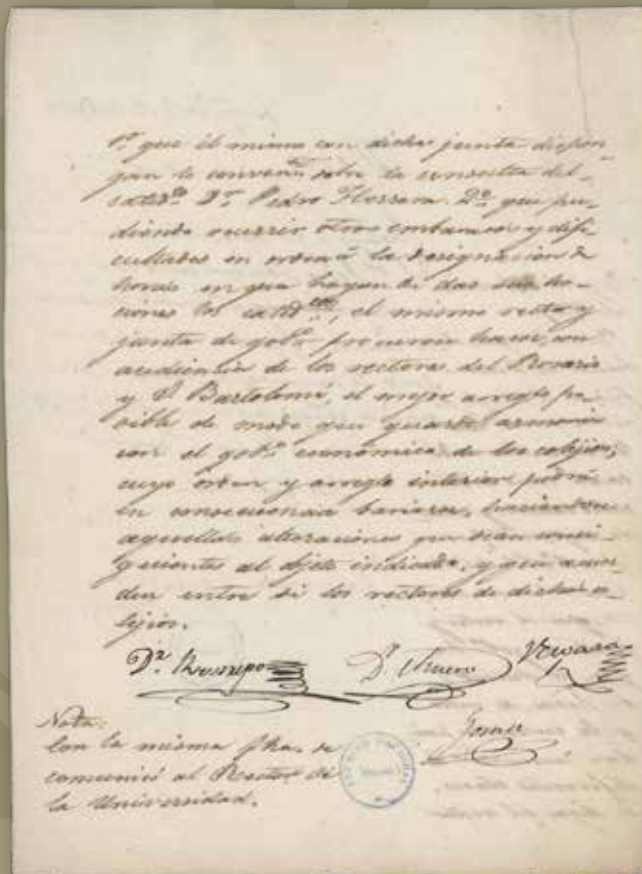 1º que él mismo con dicha junta dispon-
gan lo convenᵗᵉ sobre la consulta del
catedᶜᵒ Dʳ Pedro Herrera. 2º que pu-
diendo ocurrir otros embarazos y difi-
cultades en orden á la designacion de
horas en que hayan de dar sus lec-
ciones los catedᶜᵒˢ, el mismo rector y
junta de gobº procuren hacer, con
audiencia de los rectores del Rosario
y S. Bartolomé, el mejor arreglo po-
sible de modo que guarde armonía
con el gobº económico de los colejios;
cuyo órden y arreglo interior podrá
en consecuencia variarse, haciendose
aquellas alteraciones que sean consi-
guientes al objeto indicado, y que acuer-
den entre si los rectores de dichos co-
lejios.
Dʳ. Restrepo Dʳ.
Nota. Gomez
Con la misma fha. se
comunicó al Rector de
la Universidad.